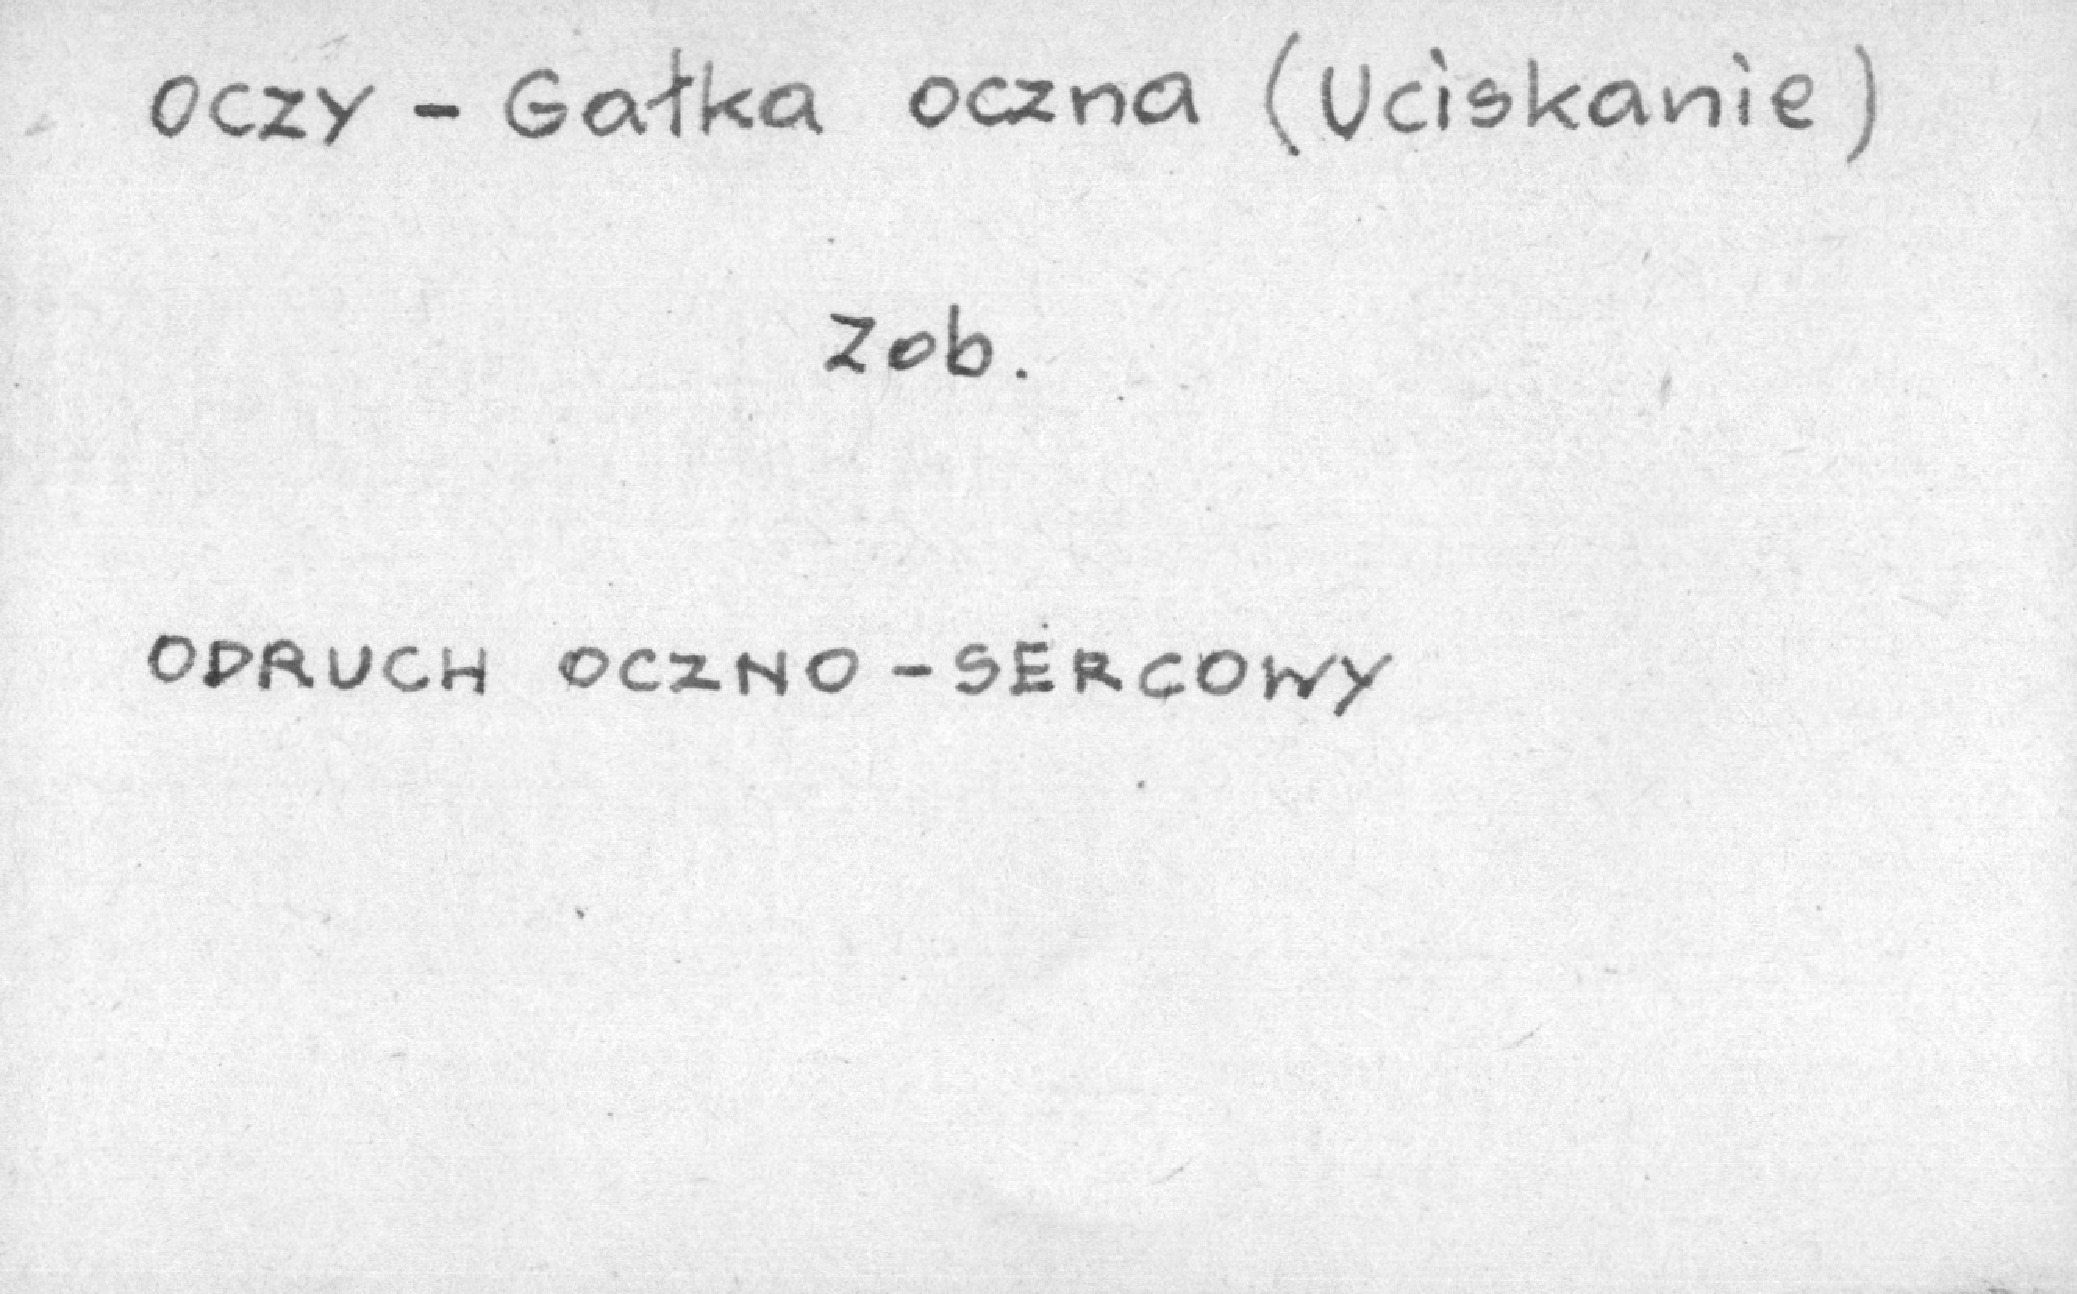 OCZY - Gałka oczna (Uciskanie)
Zob.
ODRUCH OCZNO-SERCOWY